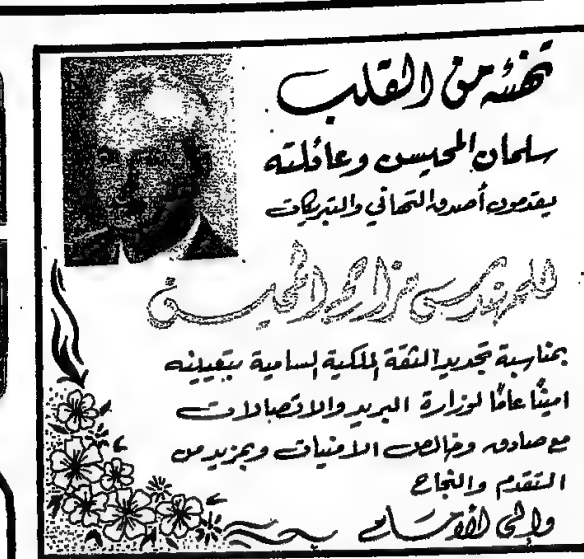 تهنئه من القلب
سلمان المحيسن وعائلته
يقدمون أصدق التهاني والتبريكات
للمهندس مزاحم المحيسن
بمناسبة تجديد الثقة الملكية السامية بتعيينه
امينًا عامًا لوزارة البريد والاتصالات
مع صادق وخالص الامنيات وبمزيد من
التقدم والنجاح
وإلى الأمام